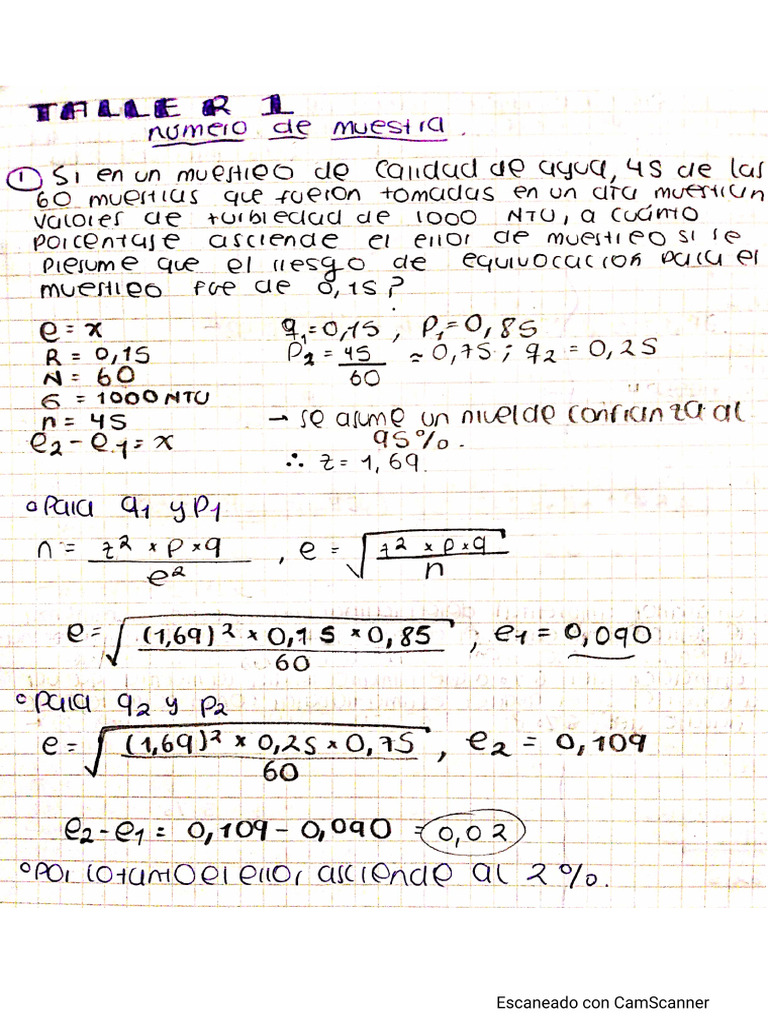 TALLER 1
número de muestra.
① Si en un muestreo de calidad de agua, 45 de las
60 muestras que fueron tomadas en un día muestran
valores de turbiedad de 1000 NTU, a cuánto
porcentaje asciende el error de muestreo si se
presume que el riesgo de equivocación para el
muestreo fue de 0,15?
e = x q₁=0,15, P₁=0,85
R = 0,15 P₂ = 45/60 ≈ 0,75; q₂ = 0,25
N = 60
σ = 1000 NTU
n = 45 → se asume un nivel de confianza al
e₂ - e₁ = x 95%.
∴ z = 1,69.
° Para q₁ y p₁
n = z² × p × q / e² , e = √(z² × p × q / n)
e = √((1,69)² × 0,15 × 0,85 / 60) ; e₁ = 0,090
° Para q₂ y p₂
e = √((1,69)² × 0,25 × 0,75 / 60) , e₂ = 0,109
e₂ - e₁ = 0,109 - 0,090 = 0,02
° Por lo tanto el error asciende al 2%.
Escaneado con CamScanner